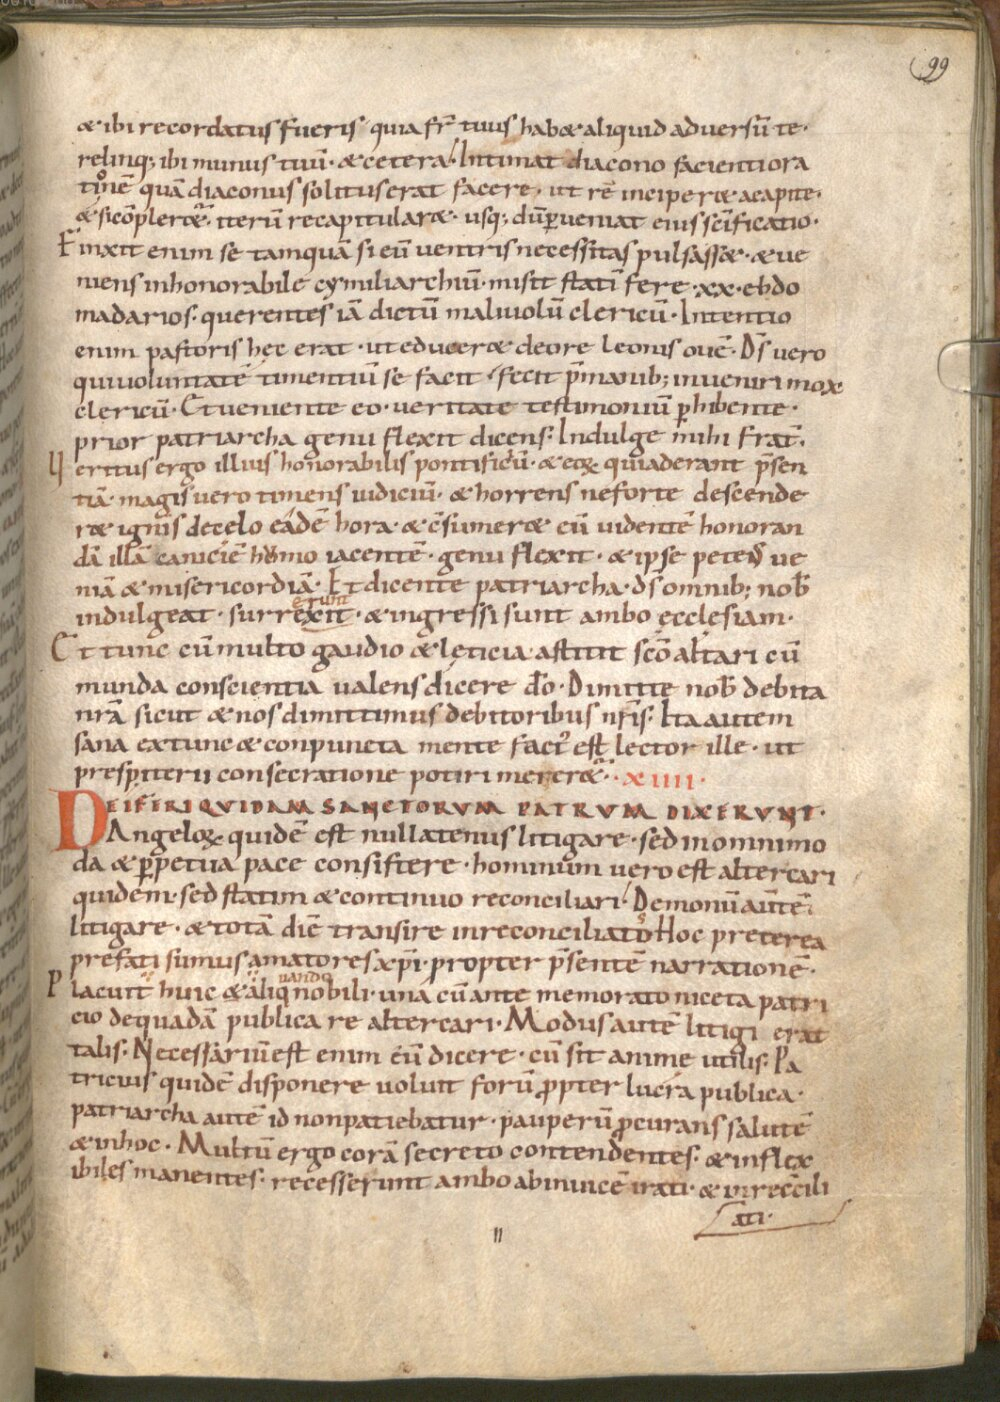 99
& ibi recordatus fueris quia fr̄ tuus hab& aliquid adversū te·
relinq; ibi munus tuū· & cetera· Intimat diacono facienti ora
tionē quā diaconus solitus erat facere· ut rē inciper& a capite·
& si cōpler&ur· iterū recapitular&· usq; dū ꝑveniat eius sc̄ificatio·
Finxit enim se tamquā si eū ventris necessitas pulsass&· & ve
niens in honorabile cymiliarchiū· misit statī fere ·xx· ebdo
madarios· querentes iā dictū malivolū clericū· Intentio
enim pastoris hęc erat· ut educer& de ore leonis ovē· Ds̄ vero
qui voluntatē timentiū se facit· fecit p̄manib; inveniri mox
clericū· Et veniente eo· veritate testimoniū ꝑhibente·
prior patriarcha genu flexit dicens· Indulge mihi frat̄·
Veritus ergo illius honorabilis pontificiū· & eoꝝ qui aderant p̄sen
tiā· magis vero timens iudiciū· & horrens ne forte descende
r& ignis de cęlo eadē hora· & c̄sumer& eū· vidente honoran
dā illā caniciē humo iacentē· genu flexit· & ipse petens ve
niā & misericordiā· Et dicente patriarcha· ds̄ omnib; nob̄
erunt
indulgeat· surrexit· & ingressi sunt ambo ęcclesiam·
Et tunc cū multo gaudio & lęticia· astitit sc̄o altari cū
munda conscientia valens dicere dō· Dimitte nob̄ debita
nr̄a sicut & nos dimittimus debitoribus nr̄is· Ita autem
sana ex tunc & conpuncta mente fact' est lector ille· ut
prespiterii consecratione potiri merer&ur· XIIII·
DEIFERI QUIDAM SANCTORUM PATRUM DIXERUNT·
Angeloꝝ quidē est nullatenus litigare· sed in omnimo
da & ꝑpetua pace consistere· hominum vero est altercari
quidem· sed statim & continuo reconciliari· Demoniū autē·
litigare· & totā diē transire inreconciliatos· Hoc preterea
prefati sumus amatores xp̄i· propter p̄sentē narrationē·
uando
Placuit huic & aliq nobili· una cū ante memorato niceta patri
cio de quadā publica re altercari· Modus autē litigi erat
talis· Necessariū est enim eū dicere· cū sit anime utilis· Pa
tricius quidē disponere voluit forū ꝓpter lucra publica·
patriarcha autē id non patiebatur· pauperū ꝓcurans salutē
& in hoc· Multū ergo corā secreto contendentes· & inflex
ibiles manentes· recesserunt ambo ab invicē irati· & inrec̄cili
ati·
II